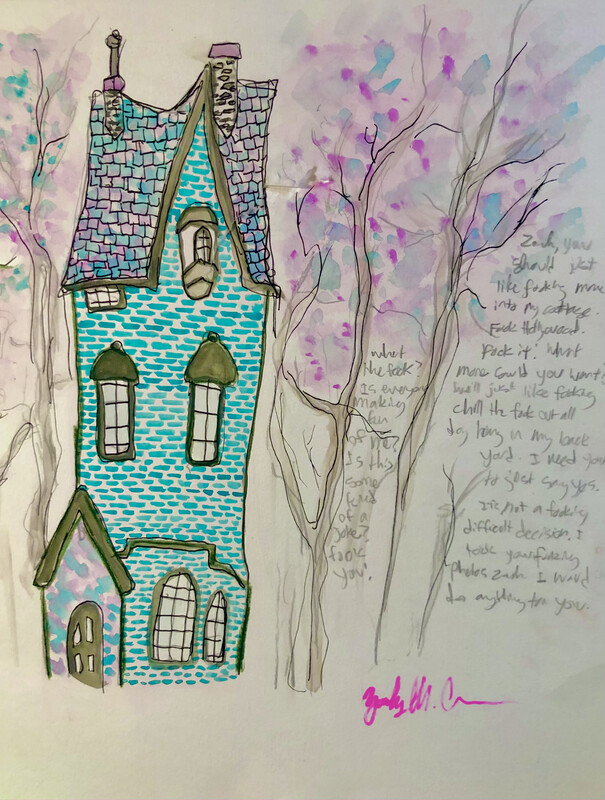 what
the fook?
Is everyone
making
fun
of me?
Is this
some
kind
of a
joke?
fook
you!
Zach, you
should just
like fooking move
into my cottage.
Fook Hollywood.
Fock it! What
more could you want?
we'll just like fooking
chill the fook out all
day long in my back
yard. I need you
to just say yes.
It's not a fooking
difficult decision. I
took your fucking
photos Zach. I would
do anything for you.